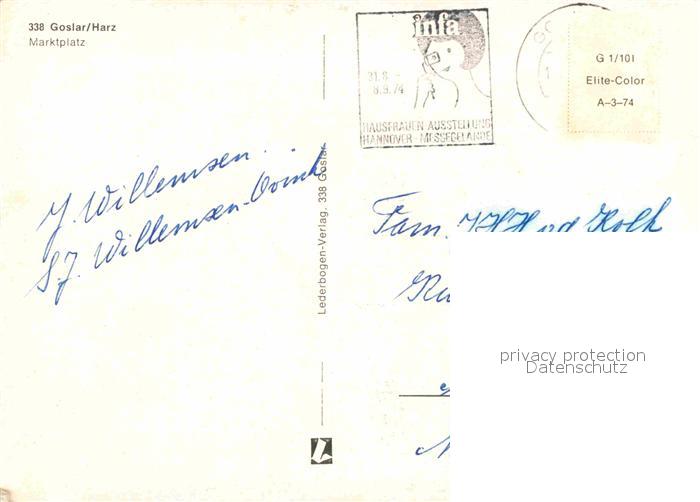 338 Goslar/Harz
Marktplatz
infa
31.8. -
8.9.74
HAUSFRAUEN-AUSSTELLUNG
HANNOVER - MESSEGELÄNDE
G 1/101
Elite-Color
A–3–74
J. Willemsen.
S.J. Willemsen-
Lederbogen-Verlag, 338 Goslar
Fam. Kolk
privacy protection
Datenschutz